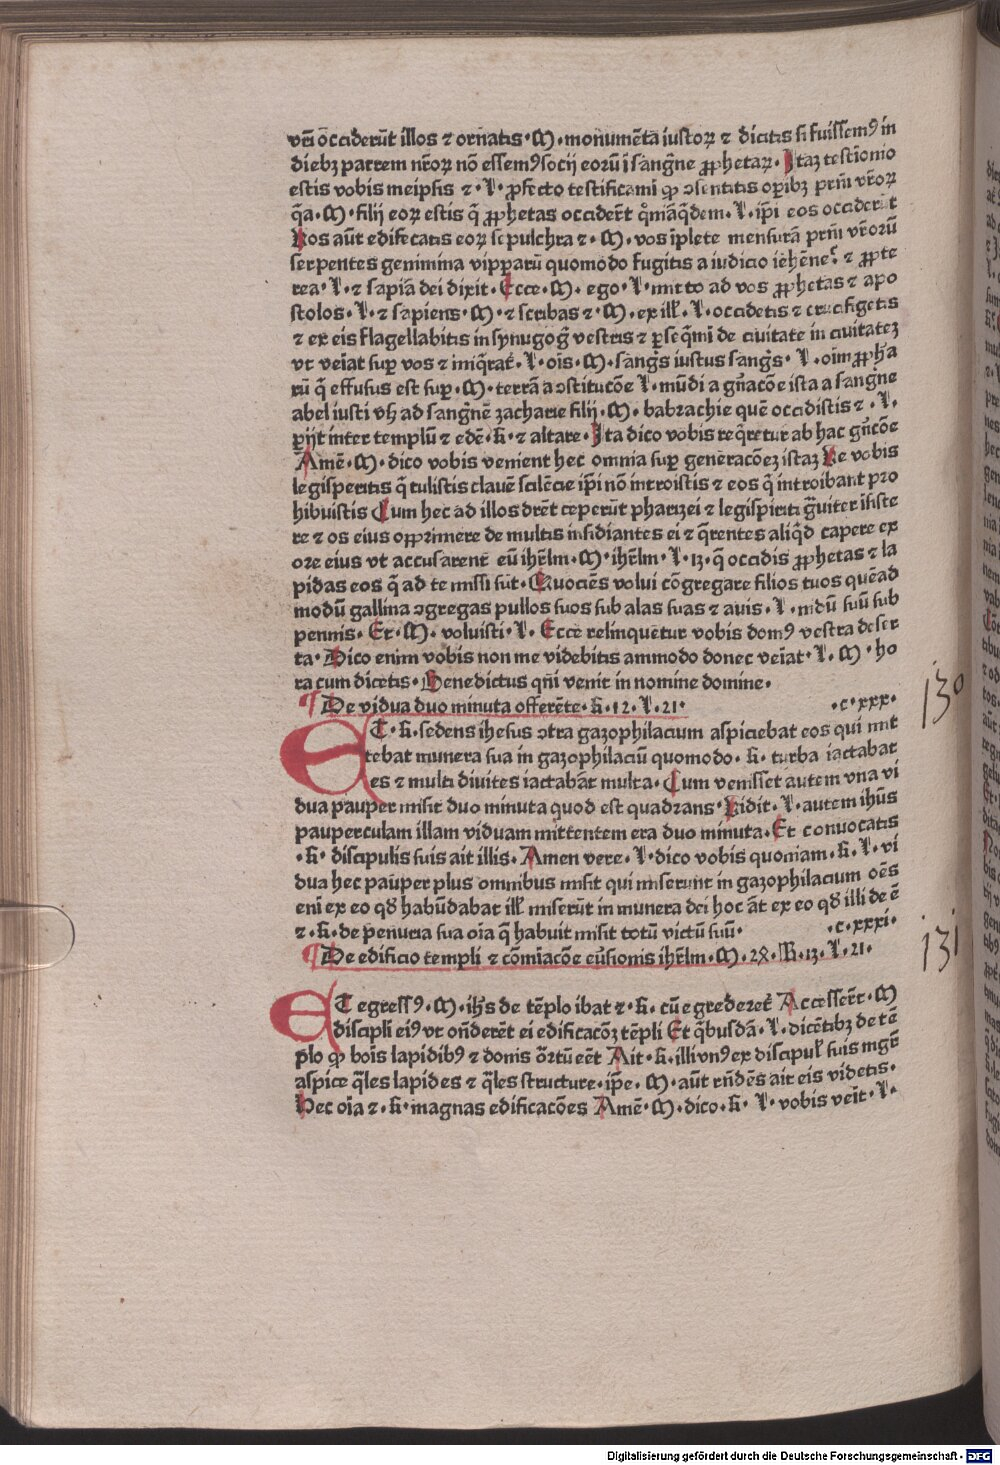 vr̄i occiderūt illos ⁊ ornatis·M·monumēta iustoꝝ ⁊ dicitis si fuissemꝰ in
diebꝫ patrem nr̄oꝝ nō essemꝰ socij eorū ī sang̃ne ꝓphetaꝝ·Itaꝫ testīonio
estis vobis meipsis ⁊·L·ꝓfecto testificami ꝙ ↄsentitis oꝑibꝫ prm̄ vr̄oꝝ
q̄a·M·filij eoꝝ estis q̄ ꝓphetas occider̄t q̊māq̄dem·L·ip̄i eos occiderūt
Vos aūt edificatis eoꝝ sepulchra ⁊·M·vos īplete mensurā prm̄ vr̄orū
serpentes genimina vipparū quomodo fugitis a iudicio iehēne? ⁊ ꝓpte
rea·L·⁊ sapiā dei dixit·Ecce·M·ego·L·mitto ad vos ꝓphetas ⁊ apo
stolos·L·⁊ sapiens·M·⁊ scribas ⁊·M·ex ill̄·L·occidetis ⁊ crucifigetis
⁊ ex eis flagellabitis in synagog̃ vestris ⁊ ꝑseq̄mī de ciuitate in ciuitateꝫ
vt veīat suꝑ vos ⁊ iniq̄rat̄·L·oīs·M·sang̃s iustus sang̃s·L·oīm ꝓpha
rū q̄ effusus est suꝑ·M·terrā a ↄstitucōe L·mūdi a gn̄acōe ista a sang̃ne
abel iusti vsqꝫ ad sang̃nē zacharie filij·M·babrachie quē occidistis ⁊·L·
ꝑijt inter templū ⁊ edē·K·⁊ altare·Ita dico vobis req̄retur ab hac gn̄cōe
Amē·M·dico vobis venient hec omnia suꝑ generacōeꝫ istaꝫ Ve vobis
legisperitis q̄ tulistis clauē sciēcie ip̄i nō introistis ⁊ eos q̄ introibant pro
hibuistis Cum hec ad illos dr̄et ceperūt pharizei ⁊ legispiriti g̃uiter īsiste
re ⁊ os eius opprimere de multis insidiantes ei ⁊ q̄rentes aliq̄d capere ex
ore eius vt accusarent eū ihr̄lm·M·ihr̄lm·L·13·q̄ occidis ꝓphetas ⁊ la
pidas eos q̄ ad te missi sūt·Quociēs volui cōgregare filios tuos quēad
modū gallina ↄgregas pullos suos sub alas suas ⁊ auis·L·nidū suū sub
pennis·Et·M·voluisti·L·Ecce relinquetur vobis domꝰ vestra deser
ta·Dico enim vobis non me videbitis ammodo donec veīat·L·M·ho
ra cum dicetis·Benedictus qn̄i venit in nomine domine·
¶ De vidua duo minuta offerēte·K·12·L·21· ·c·xxx·
130
ET·K·sedens ihesus ↄtra gazophilacium aspiciebat eos qui mit
tebat munera sua in gazophilaciū quomodo·K·turba iactabat
es ⁊ multi diuites iactabāt multa·Cum venisset autem vna vi
dua pauper misit duo minuta quod est quadrans·Vidit·L·autem ihūs
pauperculam illam viduam mittentem era duo minuta·Et conuocatis
·K·discipulis suis ait illis·Amen vere·L·dico vobis quoniam·K·L·vi
dua hec pauper plus omnibus misit qui miserunt in gazophilacium oēs
enī ex eo qd̄ habūdabat ill̄ miserūt in munera dei hoc āt ex eo qd̄ illi de ē
⁊·K·de penuria sua oīa q̄ habuit misit totū victū suū· ·c·xxxi·
¶ De edificio templi ⁊ cōmiacōe eūsionis ihr̄lm·M·28·K·13·L·21·
131
ET egressꝰ·M·ihs̄ de tēplo ibat ⁊·K·cūe grederet̄ Accesser̄t·M
discipli eiꝰ vt on̄derēt ei edificacōꝫ tēpli Et q̄busdā·L·dicētibꝫ de tē
plo ꝙ bois lapidibꝰ ⁊ donis or̄tū eēt Ait·K·illi vnꝰ ex discipul̄ suis mgr̄
aspice q̄les lapides ⁊ q̄les structure·ip̄e·M·aūt rn̄dēs ait eis videtis·
Hec oīa ⁊·K·magnas edificacōes Amē·M·dico·K·L·vobis veīt·L·
Digitalisierung gefördert durch die Deutsche Forschungsgemeinschaft · DFG